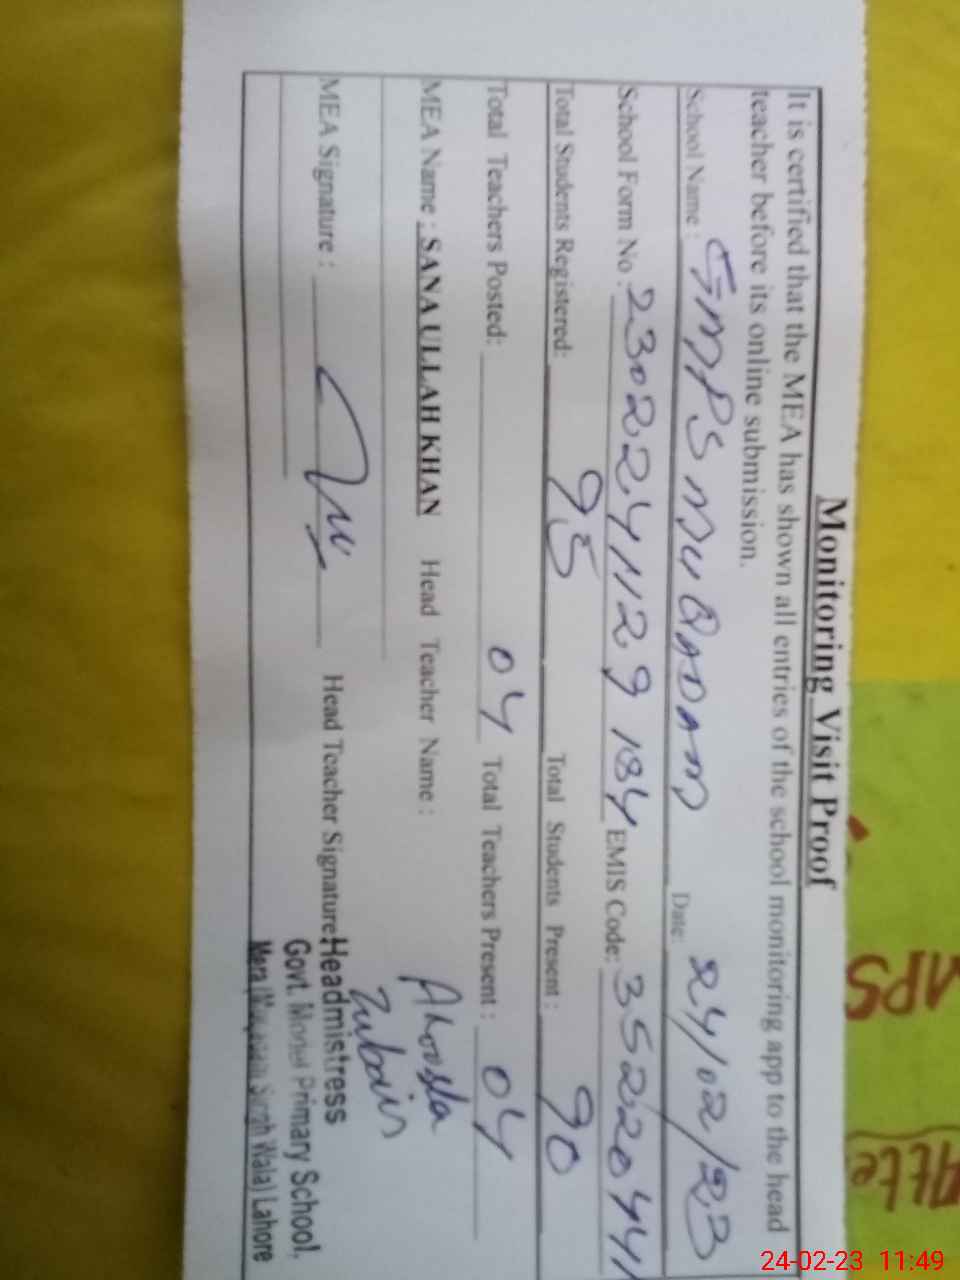 Monitoring Visit Proof
It is certified that the MEA has shown all entries of the school monitoring app to the head
teacher before its online submission.
School Name : GMPS MUQADAM Date: 24/02/23
School Form No : 23022241129184 EMIS Code: 35220441
Total Students Registered: 95 Total Students Present : 90
Total Teachers Posted: 04 Total Teachers Present : 04
MEA Name : SANA ULLAH KHAN Head Teacher Name : Aroosa
Zubair
MEA Signature : Head Teacher Signature:
Headmistress
Govt. Model Primary School,
Singh Wala) Lahore
MPS
24-02-23 11:49